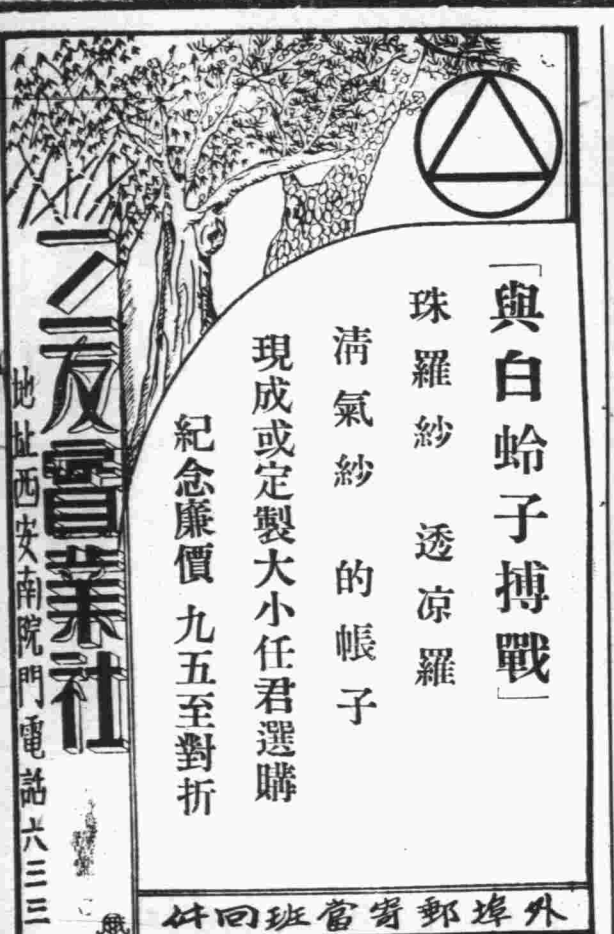 「與白蛉子搏戰」
珠羅紗 透凉羅
清氣紗 的帳子
現成或定製大小任君選購
紀念廉價 九五至對折
三友實業社
地址西安南院門電話六三三
外埠郵寄當班回件